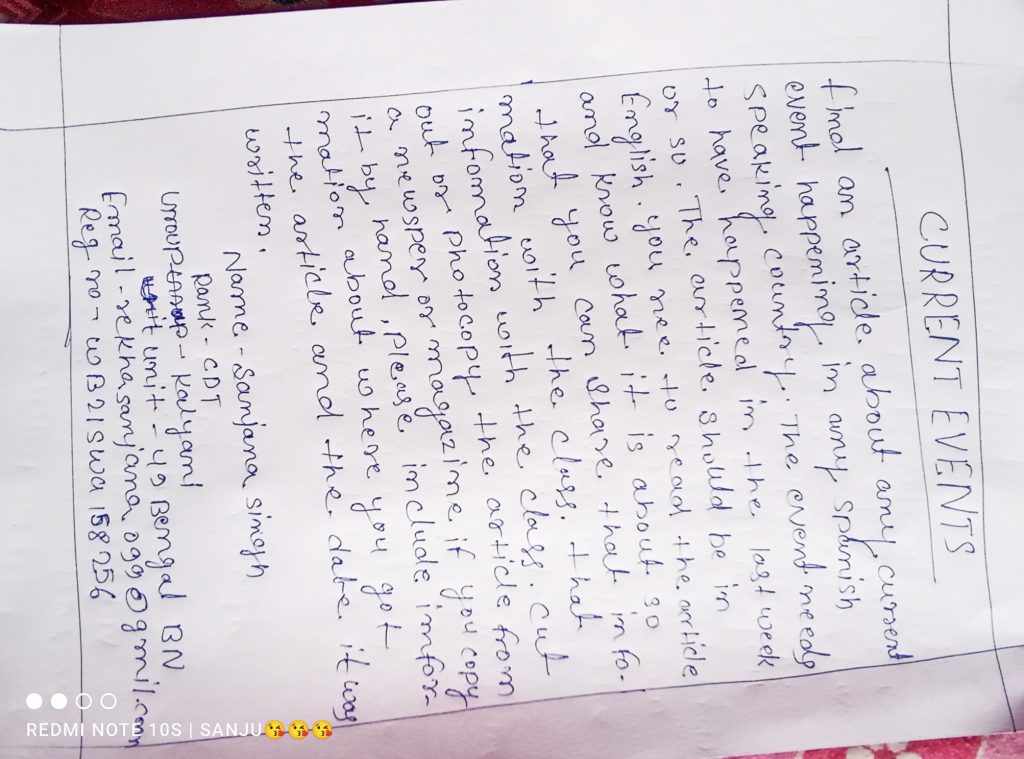 CURRENT EVENTS
find an article about any current
event happening in any spanish
speaking country. The event needs
to have happened in the last week
or so. The article should be in
English. you nee to read the article
and know what it is about so
that you can share that info-
mation with the class. that
infomation with the class. cut
out or photocopy the article from
a newsper or magazine if you copy
it by hand, please include infor-
mation about where you got
the article and the date it was
written.
Name - Sanjana singh
Rank - CDT
Group - Kalyani
unit - 49 Bengal BN
Email - rekhasanjana099@gmil.com
Reg no - WB21SWA158256
REDMI NOTE 10S | SANJU😘😘😘